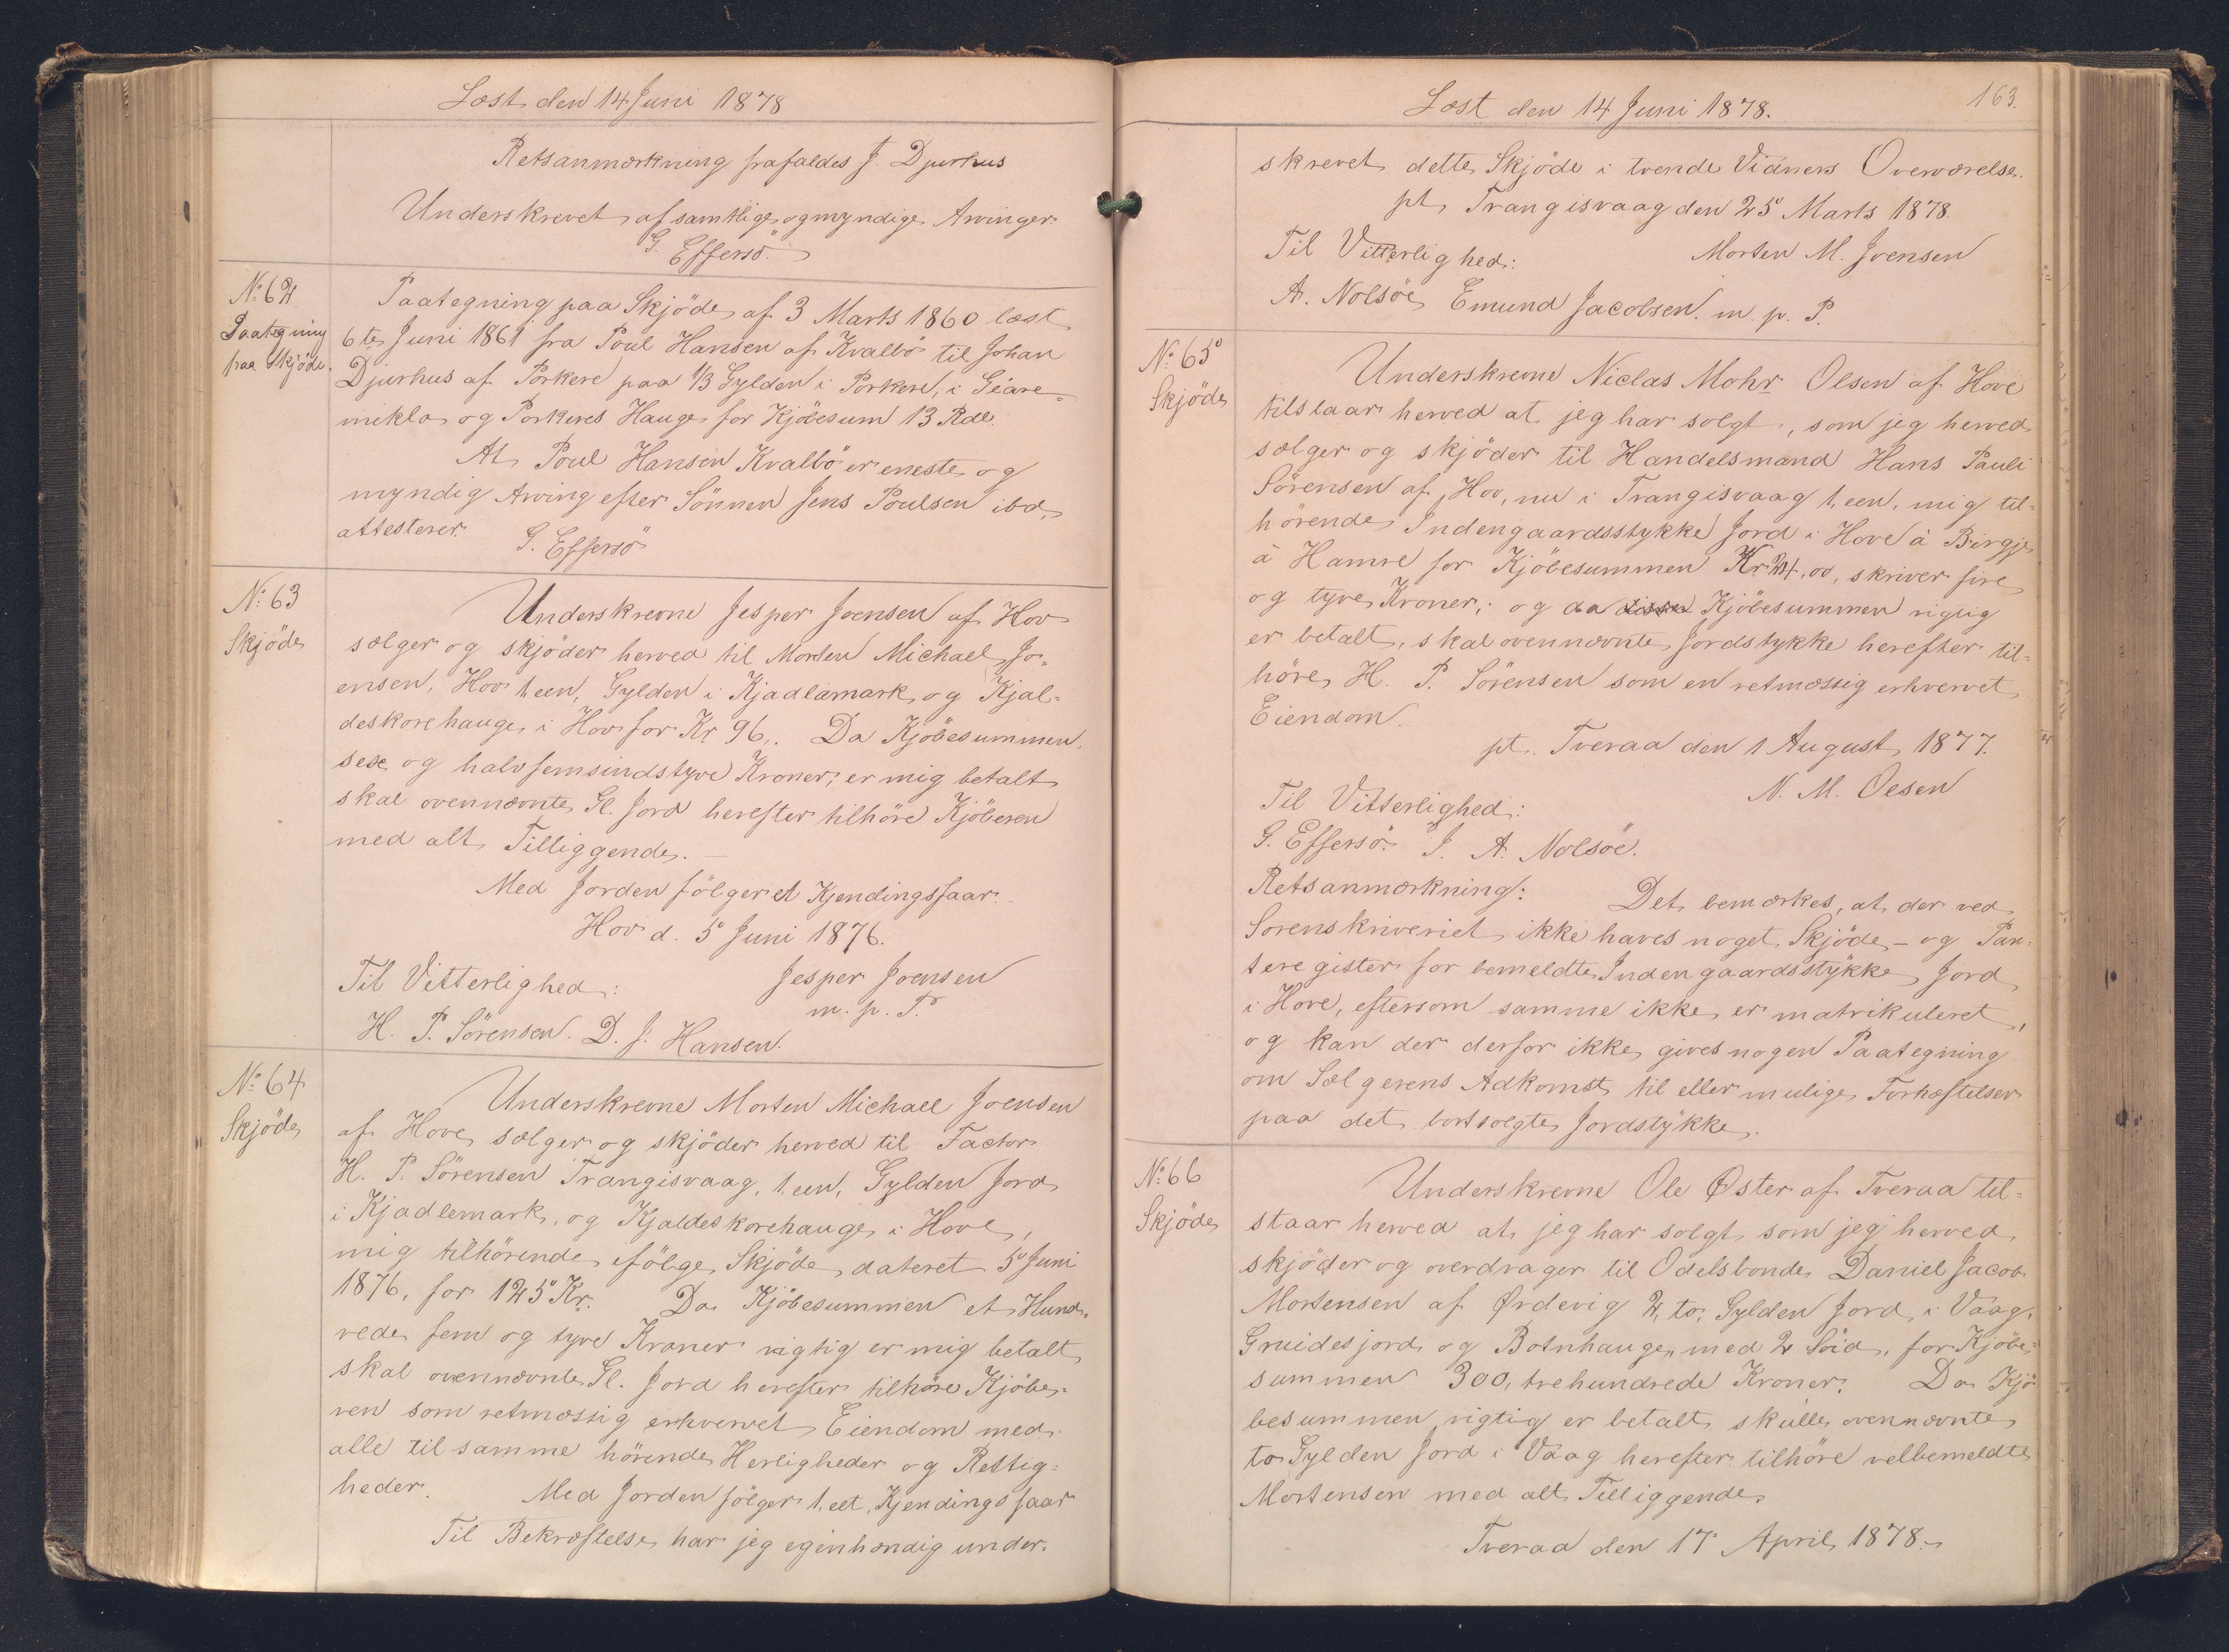 Læst den 14 Juni 1878
Retsanmærkning frafaldes J. Djurhus
Underskrevet af samtlige og myndige Arvinger.
G. Effersö.
No: 62
Paategning
paa Skjöde.
Paategning paa Skjöde af 3 Marts 1860 læst
6te Juni 1861 fra Poul Hansen af Kvalbö til Johan
Djurhus af Porkere paa 1/3 Gylden i Porkere, i Géare-
mikla og Porkeres Hauge for Kjöbesum 13 Rdl.
At Poul Hansen Kvalbö er eneste og
myndig Arving efter Sönnen Jens Poulsen ibd,
attesterer.
G. Effersö
No: 63
Skjöde
Underskrevne Jesper Joensen af Hov
sælger og skjöder herved til Morten Michael Jo-
ensen, Hov 1, een, Gylden i Kjadlamark og Kjal-
deskorehauge i Hov for Kr 96,. Da Kjöbesummen,
sex og halvfemsindstyve Kroner; er mig betalt
skal ovennævnte Gl. Jord herefter tilhöre Kjöberen
med alt Tilliggende. —
Med Jorden fölger et Kjendingsfaar.
Hov d. 5 Juni 1876.
Til Vitterlighed:
Jesper Joensen
m. p. P.
H. P. Sörensen. D. J. Hansen.
No: 64
Skjöde
Underskrevne Morten Michael Joensen
af Hove sælger og skjöder herved til Factor
H. P. Sörensen Trangisvaag, 1, een, Gylden Jord
i Kjadlemark, og Kjaldeskorehauge i Hove,
mig tilhörende ifölge Skjöde dateret 5 Juni
1876, for 125 Kr. Da Kjöbesummen et Hund-
rede fem og tyve Kroner rigtig er mig betalt
skal ovennævnte Gl. Jord herefter tilhöre Kjöbe-
ren som retmæssig erhvervet Eiendom med
alle til samme hörende Herligheder og Rettig-
heder. Med Jorden fölger 1, eet, Kjendingsfaar
Til Bekræftelse har jeg egenhændig under-
163.
Læst den 14 Juni 1878.
skrevet dette Skjöde i tvende Vidners Overværelse.
pt. Trangisvaag den 25 Marts 1878.
Til Vitterlighed:
Morten M. Joensen
A. Nolsöe Emund Jacobsen. m. p. P.
No: 65
Skjöde
Underskrevne Niclas Mohr Olsen af Hove
tilstaar herved at jeg har solgt, som jeg herved
sælger og skjöder til Handelsmand Hans Pauli
Sörensen af Hov, nu i Trangisvaag 1, een, mig til-
hörende Indengaardsstykke Jord i Hove à Birgje
à Hamre for Kjöbesummen Kr 24,00, skriver fire
og tyve Kroner; og da disse Kjöbesummen rigtig
er betalt, skal ovennævnte Jordstykke herefter til-
höre H. P. Sörensen som en retmæssig erhvervet
Eiendom.
pt. Tveraa den 1 August 1877.
Til Vitterlighed:
N. M. Olsen
G. Effersö. J. A. Nolsöe.
Retsanmærkning: Det bemærkes, at der ved
Sorenskriveriet ikke haves noget Skjöde- og Pan-
teregister for bemeldte Indengaardsstykke Jord
i Hove, eftersom samme ikke er matrikuleret,
og kan der derfor ikke gives nogen Paategning
om Sælgerens Adkomst til eller mulige Forhæftelser
paa det bortsolgte Jordstykke.
No: 66
Skjöde
Underskrevne Ole Øster af Tveraa til-
staar herved at jeg har solgt som jeg herved
skjöder og overdrager til Odelsbonde Daniel Jacob
Mortensen af Ørdevig 2, to, Gylden Jord i Vaag,
Gruidesjord og Botnhauge, med 2 Söid, for Kjöbe-
summen 300, trehundrede Kroner. Da Kjö
besummen rigtig er betalt skulle ovennævnte
to Gylden Jord i Vaag herefter tilhöre velbemeldte
Mortensen med alt Tilliggende
Tveraa den 17 April 1878.